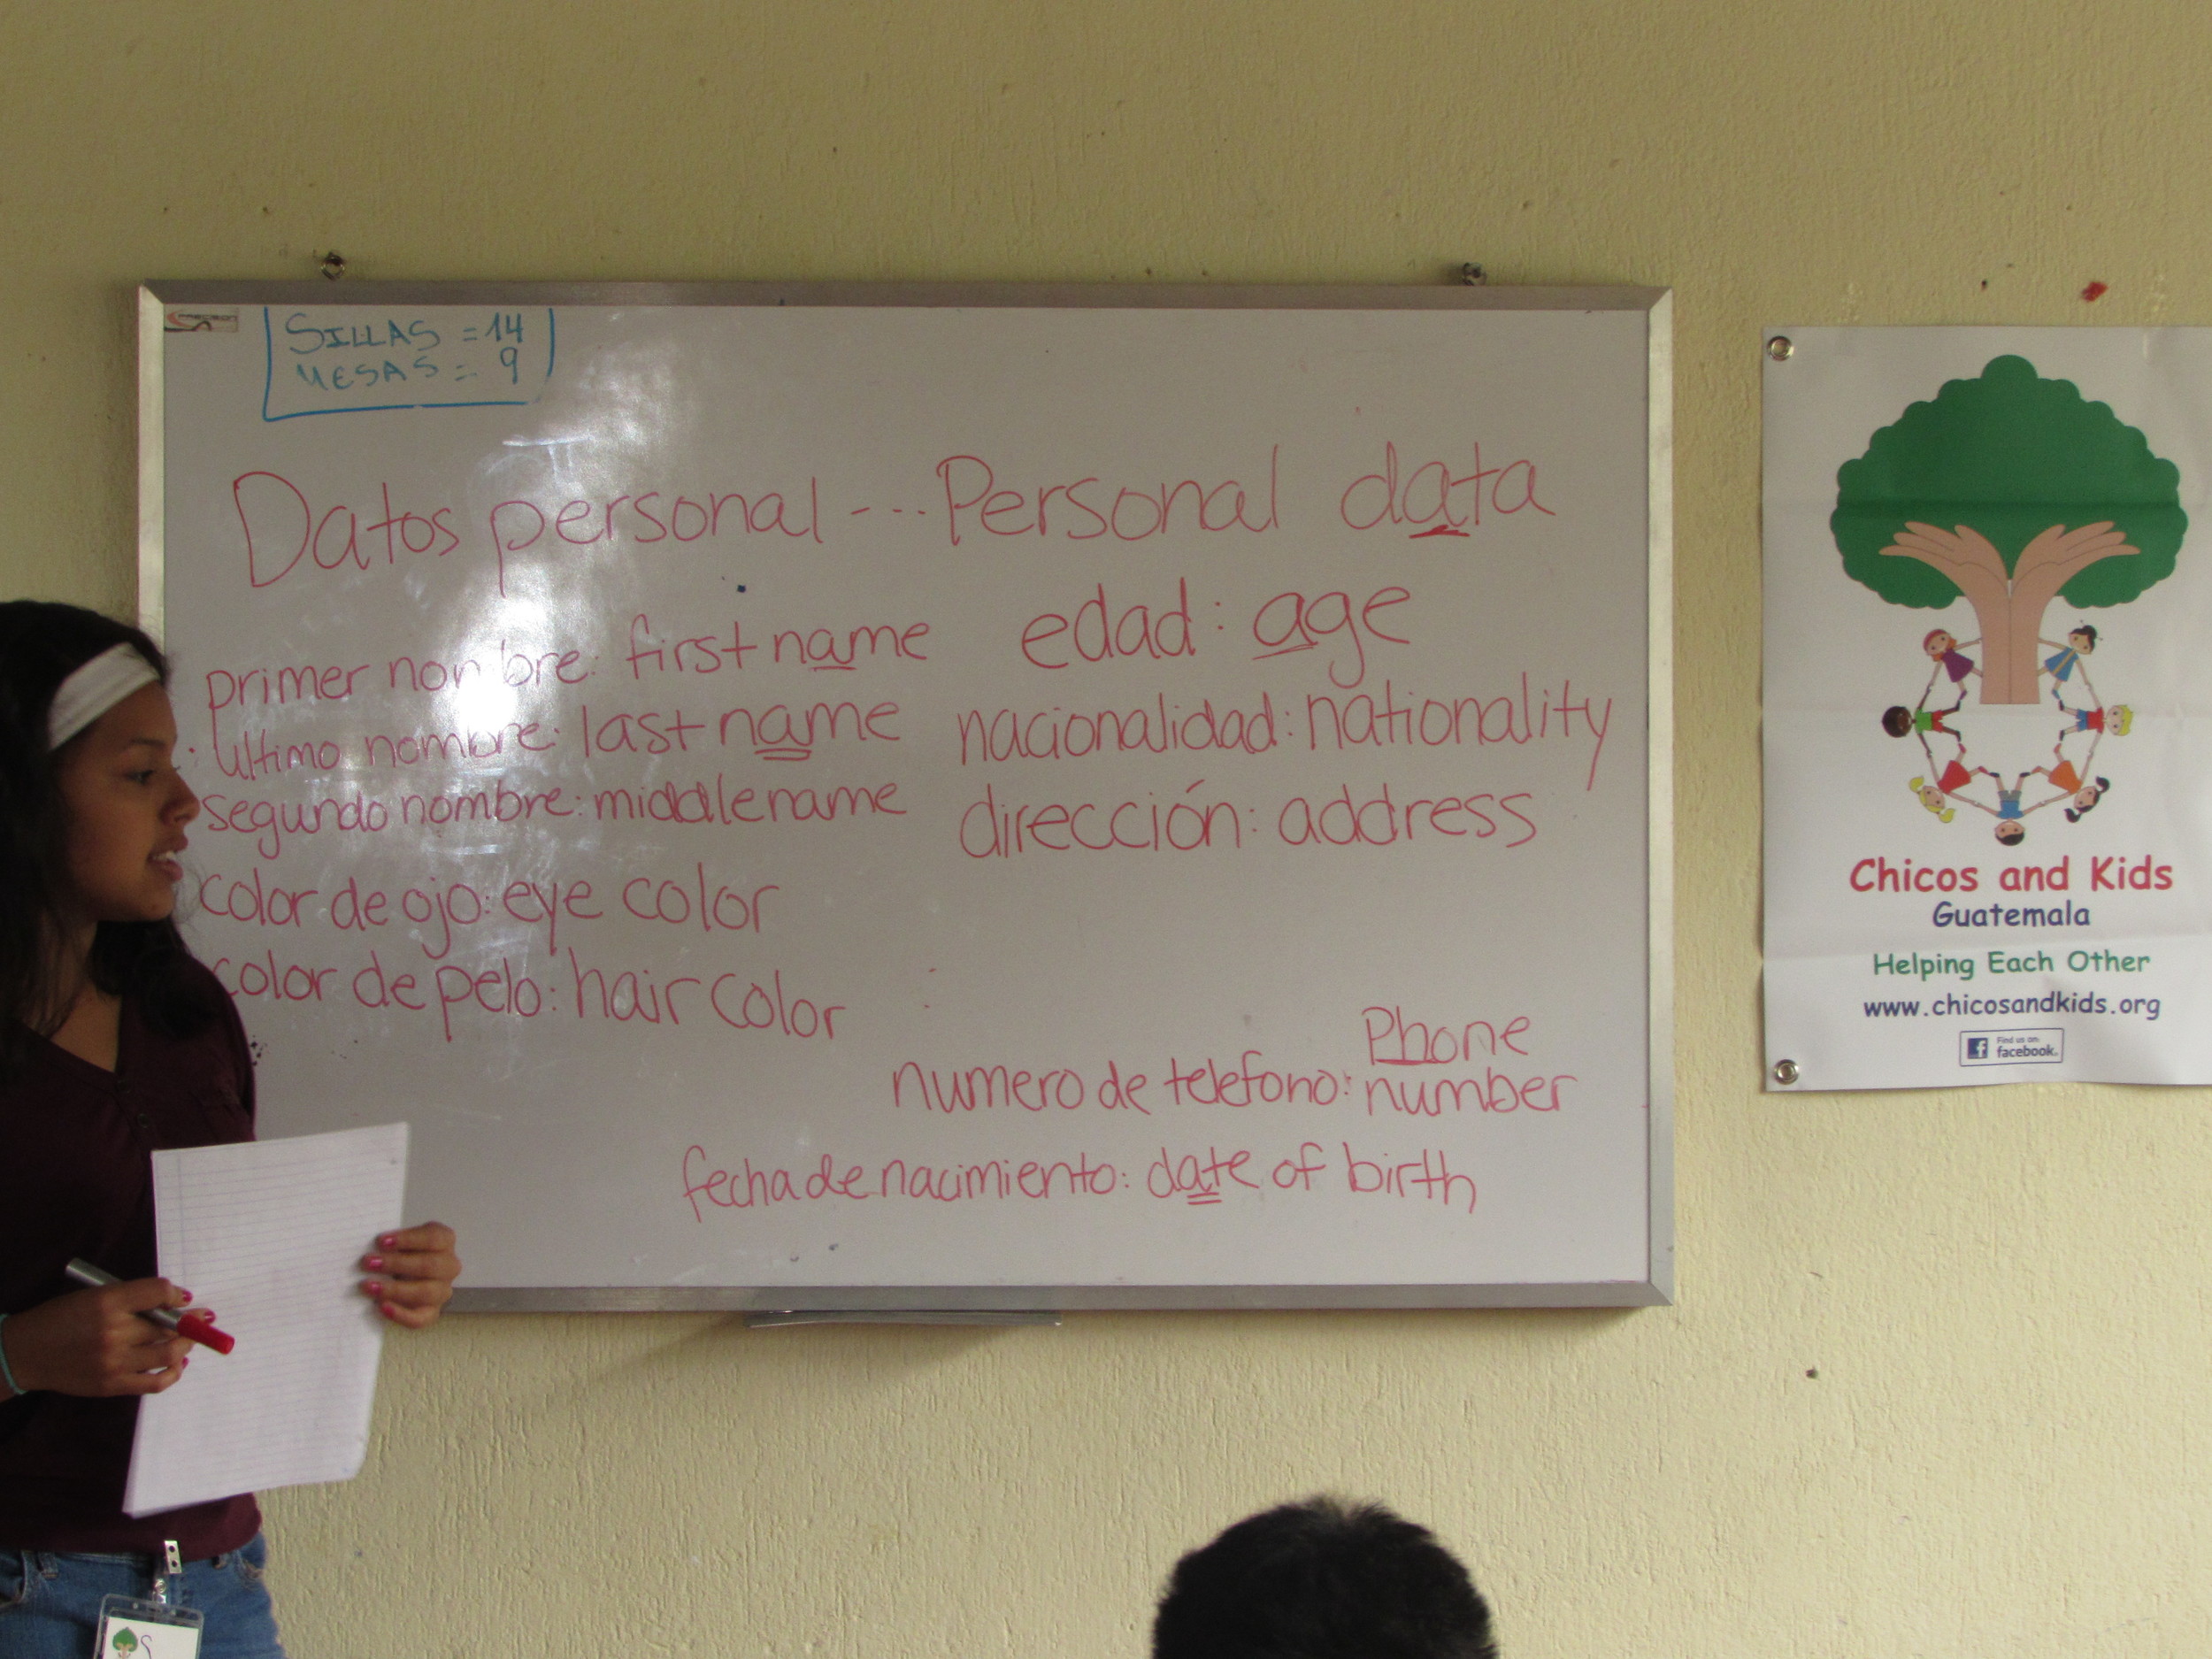 PRECISION
SILLAS = 14
MESAS = 9
Datos personal --- Personal data
primer nombre: first name
ultimo nombre: last name
segundo nombre: middle name
color de ojo: eye color
color de pelo: hair color
edad: age
nacionalidad: nationality
dirección: address
Phone
numero de telefono: number
fecha de nacimiento: date of birth
Chicos and Kids
Guatemala
Helping Each Other
www.chicosandkids.org
Find us on
facebook.